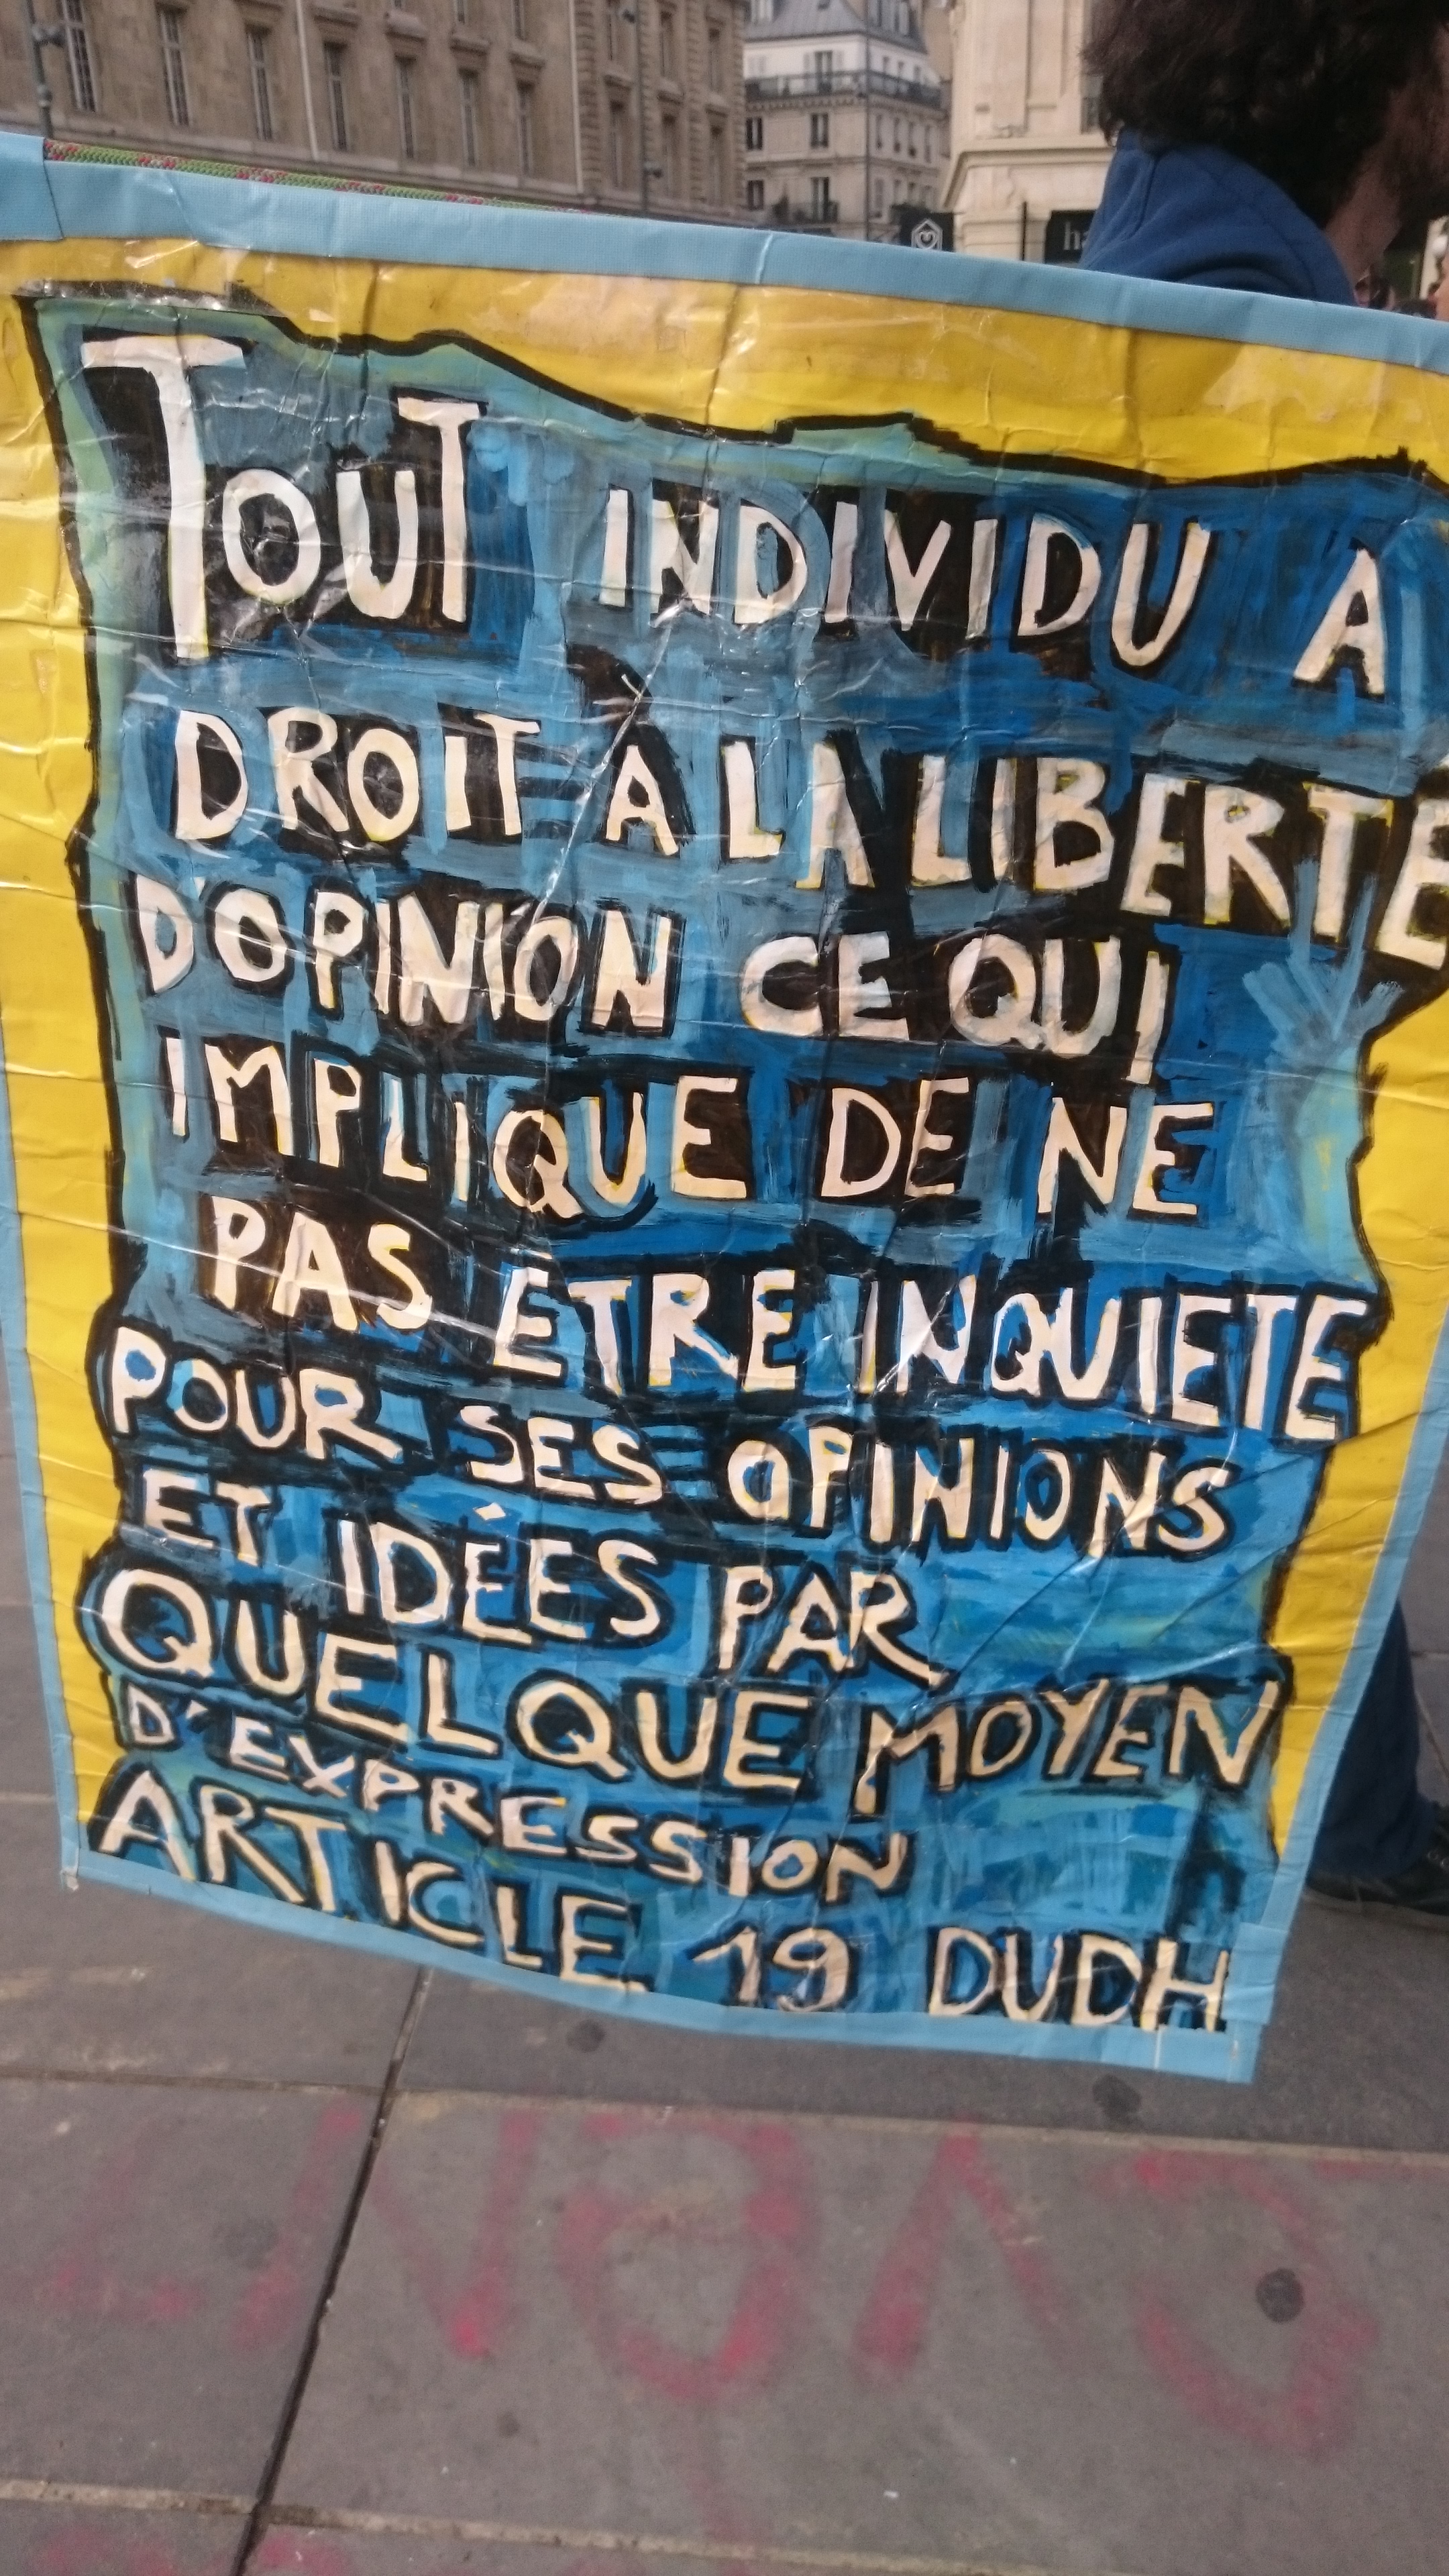 TOUT INDIVIDU A
DROIT A LA LIBERTE
D'OPINION CE QUI
IMPLIQUE DE NE
PAS ETRE INQUIETE
POUR SES OPINIONS
ET IDÉES PAR
QUELQUE MOYEN
D'EXPRESSION
ARTICLE 19 DUDH